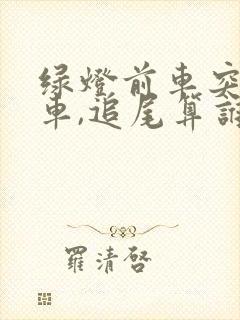 绿燈前車突
車,追尾算誰
羅清啓